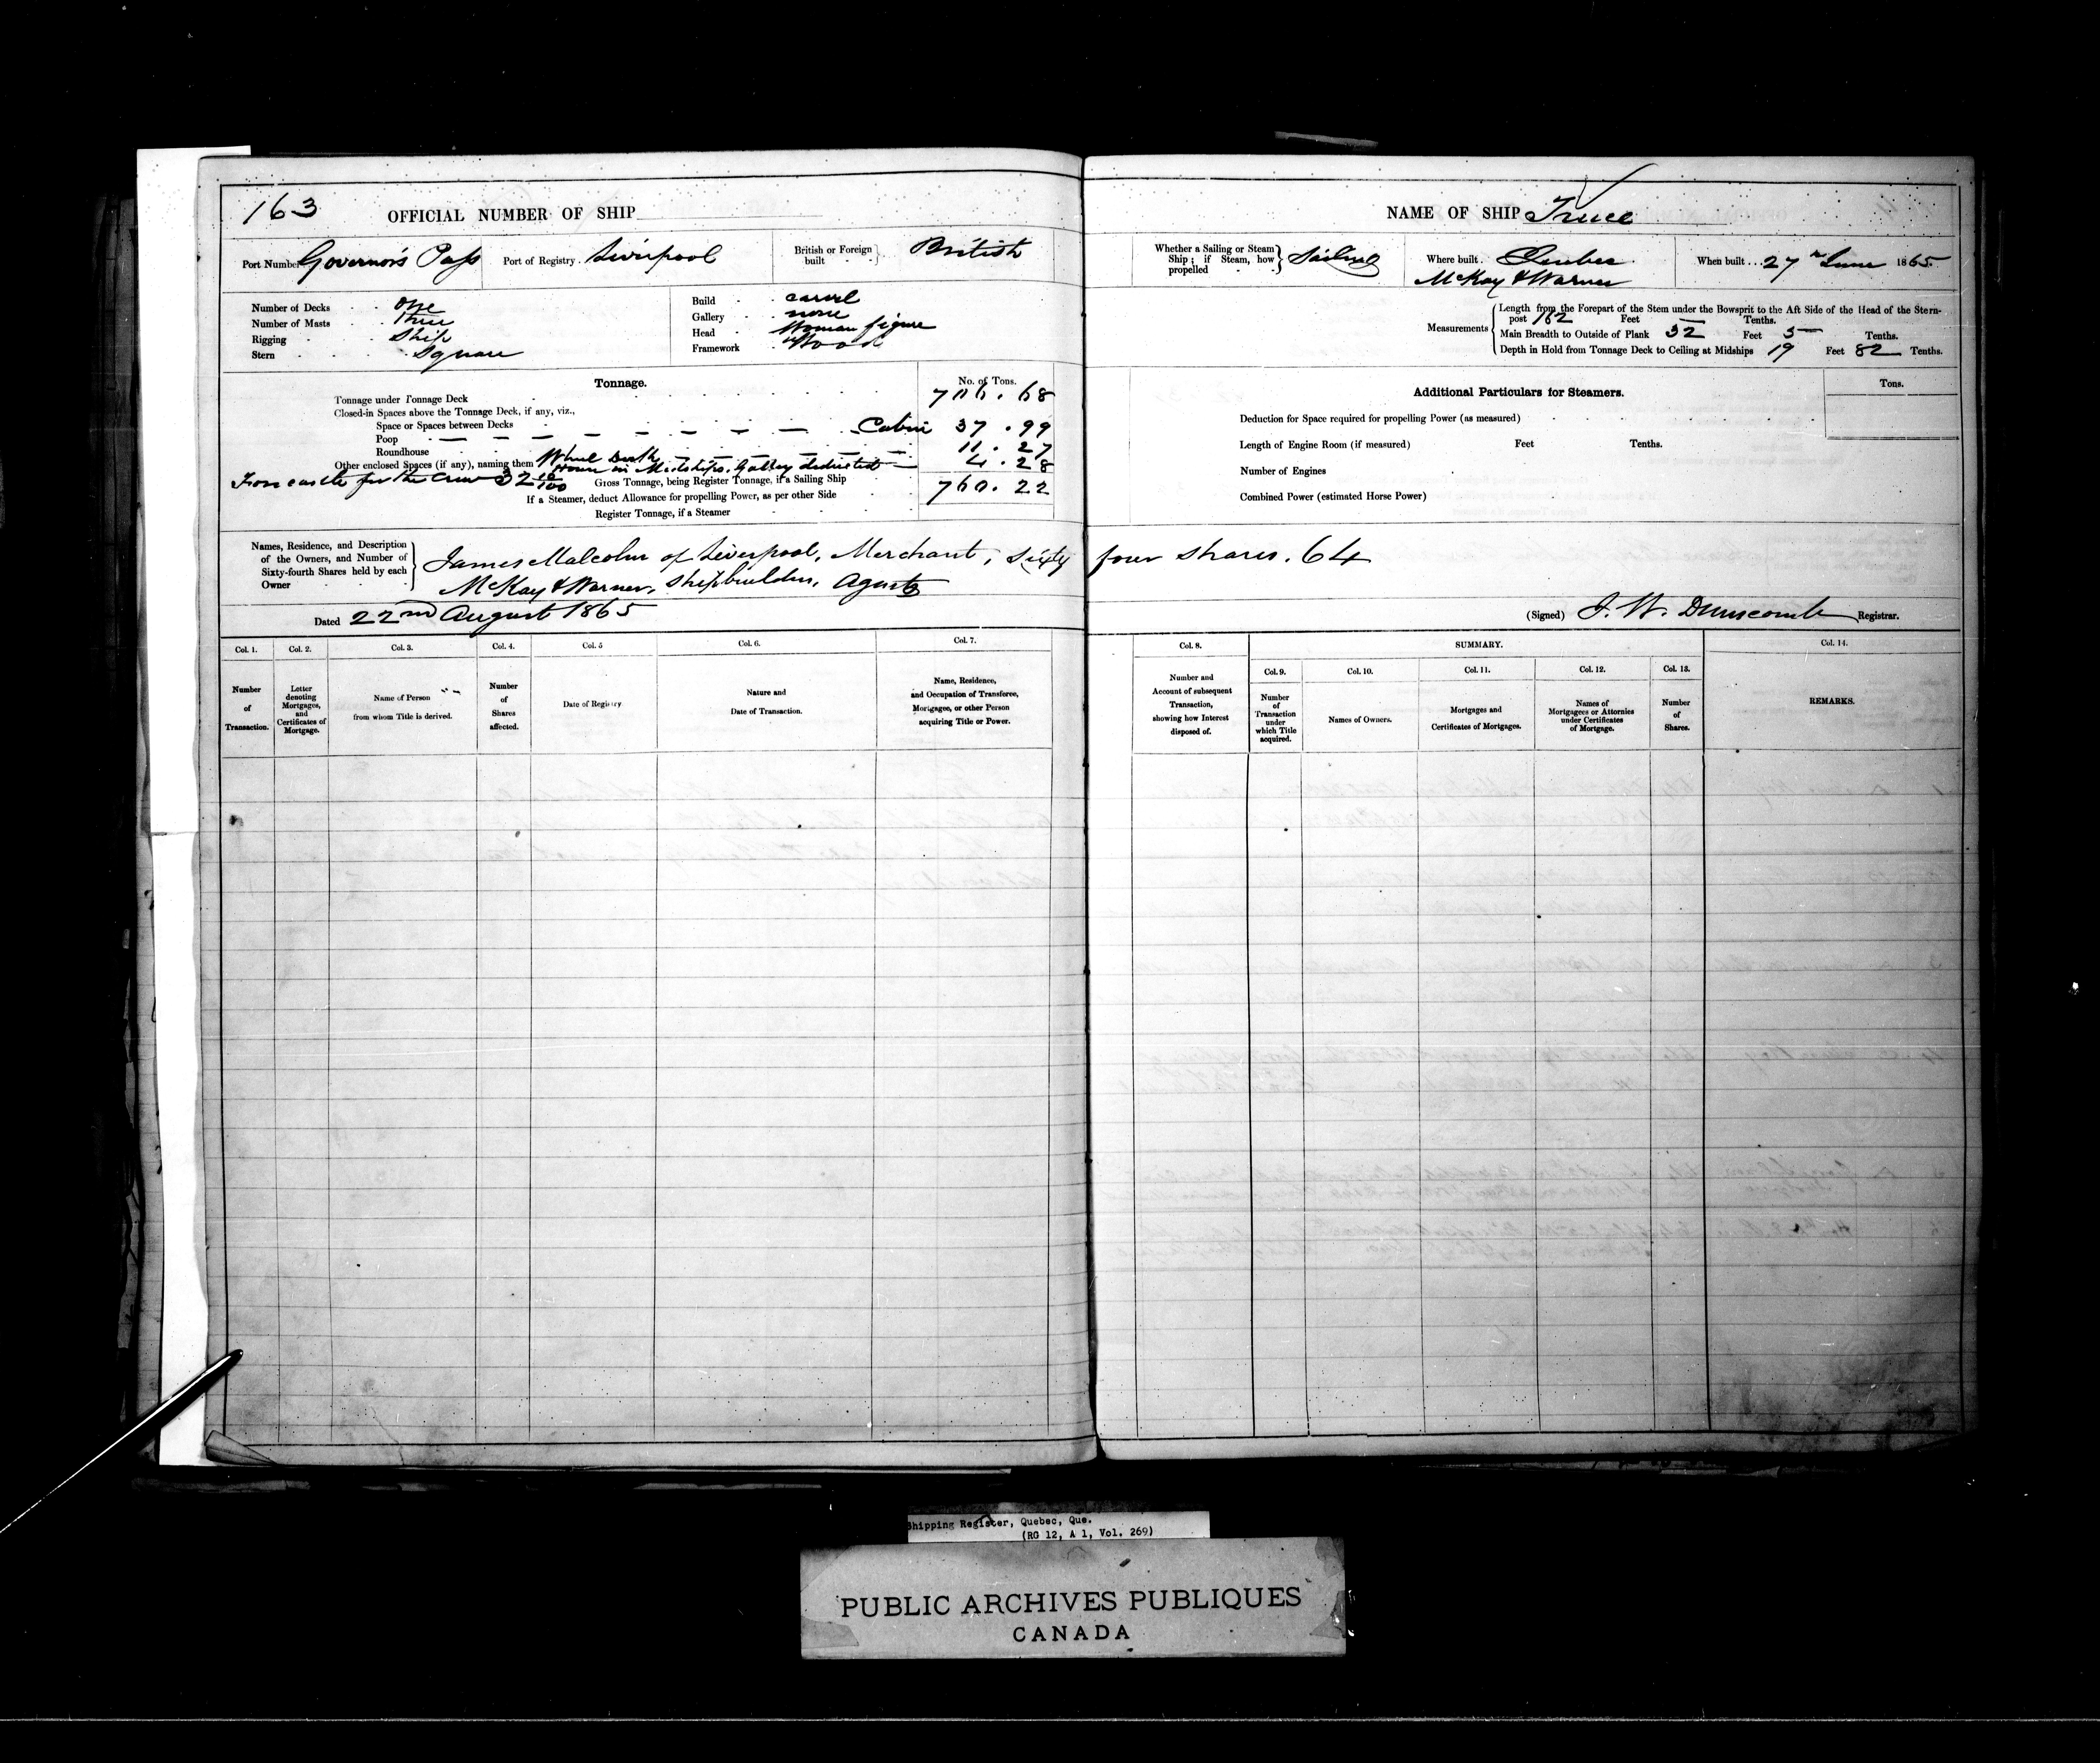 163
OFFICIAL NUMBER OF SHIP
Port Number Governor's Pass
Port of Registry . Liverpool
British or Foreign built British
Number of Decks One
Number of Masts Three
Rigging Ship
Stern Square
Build carvel
Gallery none
Head Woman figure
Framework Wood
Tonnage.
No. of Tons.
Tonnage under Tonnage Deck 706.68
Closed-in Spaces above the Tonnage Deck, if any, viz.,
Space or Spaces between Decks Cabin 37.99
Poop
Roundhouse 11.27
Other enclosed Spaces (if any), naming them Wheel 4.28
House in Midships. Galley deducted
Forecastle for the Crew 32 10/100
Gross Tonnage, being Register Tonnage, if a Sailing Ship 760.22
If a Steamer, deduct Allowance for propelling Power, as per other Side
Register Tonnage, if a Steamer
Names, Residence, and Description of the Owners, and Number of Sixty-fourth Shares held by each Owner
James Malcolm of Liverpool, Merchant, Sixty four shares. 64
McKay & Warner, Shipbuilders, Agents
Dated 22nd August 1865
Col. 1. Number of Transaction.
Col. 2. Letter denoting Mortgages, and Certificates of Mortgage.
Col. 3. Name of Person from whom Title is derived.
Col. 4. Number of Shares affected.
Col. 5 Date of Registry
Col. 6. Nature and Date of Transaction.
Col. 7. Name, Residence, and Occupation of Transferee, Mortgagee, or other Person acquiring Title or Power.
NAME OF SHIP Truce
Whether a Sailing or Steam Ship; if Steam, how propelled Sailing
Where built . Quebec
McKay & Warner
When built ... 27 June 1865
Measurements
Length from the Forepart of the Stem under the Bowsprit to the Aft Side of the Head of the Stern-
post 162 Feet Tenths.
Main Breadth to Outside of Plank 32 Feet 5 Tenths.
Depth in Hold from Tonnage Deck to Ceiling at Midships 19 Feet 82 Tenths.
Additional Particulars for Steamers.
Tons.
Deduction for Space required for propelling Power (as measured)
Length of Engine Room (if measured) Feet Tenths.
Number of Engines
Combined Power (estimated Horse Power)
(Signed) J. W. Dunscomb Registrar.
Col. 8. Number and Account of subsequent Transaction, showing how Interest disposed of.
SUMMARY.
Col. 9. Number of Transaction under which Title acquired.
Col. 10. Names of Owners.
Col. 11. Mortgages and Certificates of Mortgages.
Col. 12. Names of Mortgagees or Attornies under Certificates of Mortgage.
Col. 13. Number of Shares.
Col. 14. REMARKS.
Shipping Register, Quebec, Que.
(RG 12, A 1, Vol. 269)
PUBLIC ARCHIVES PUBLIQUES
CANADA